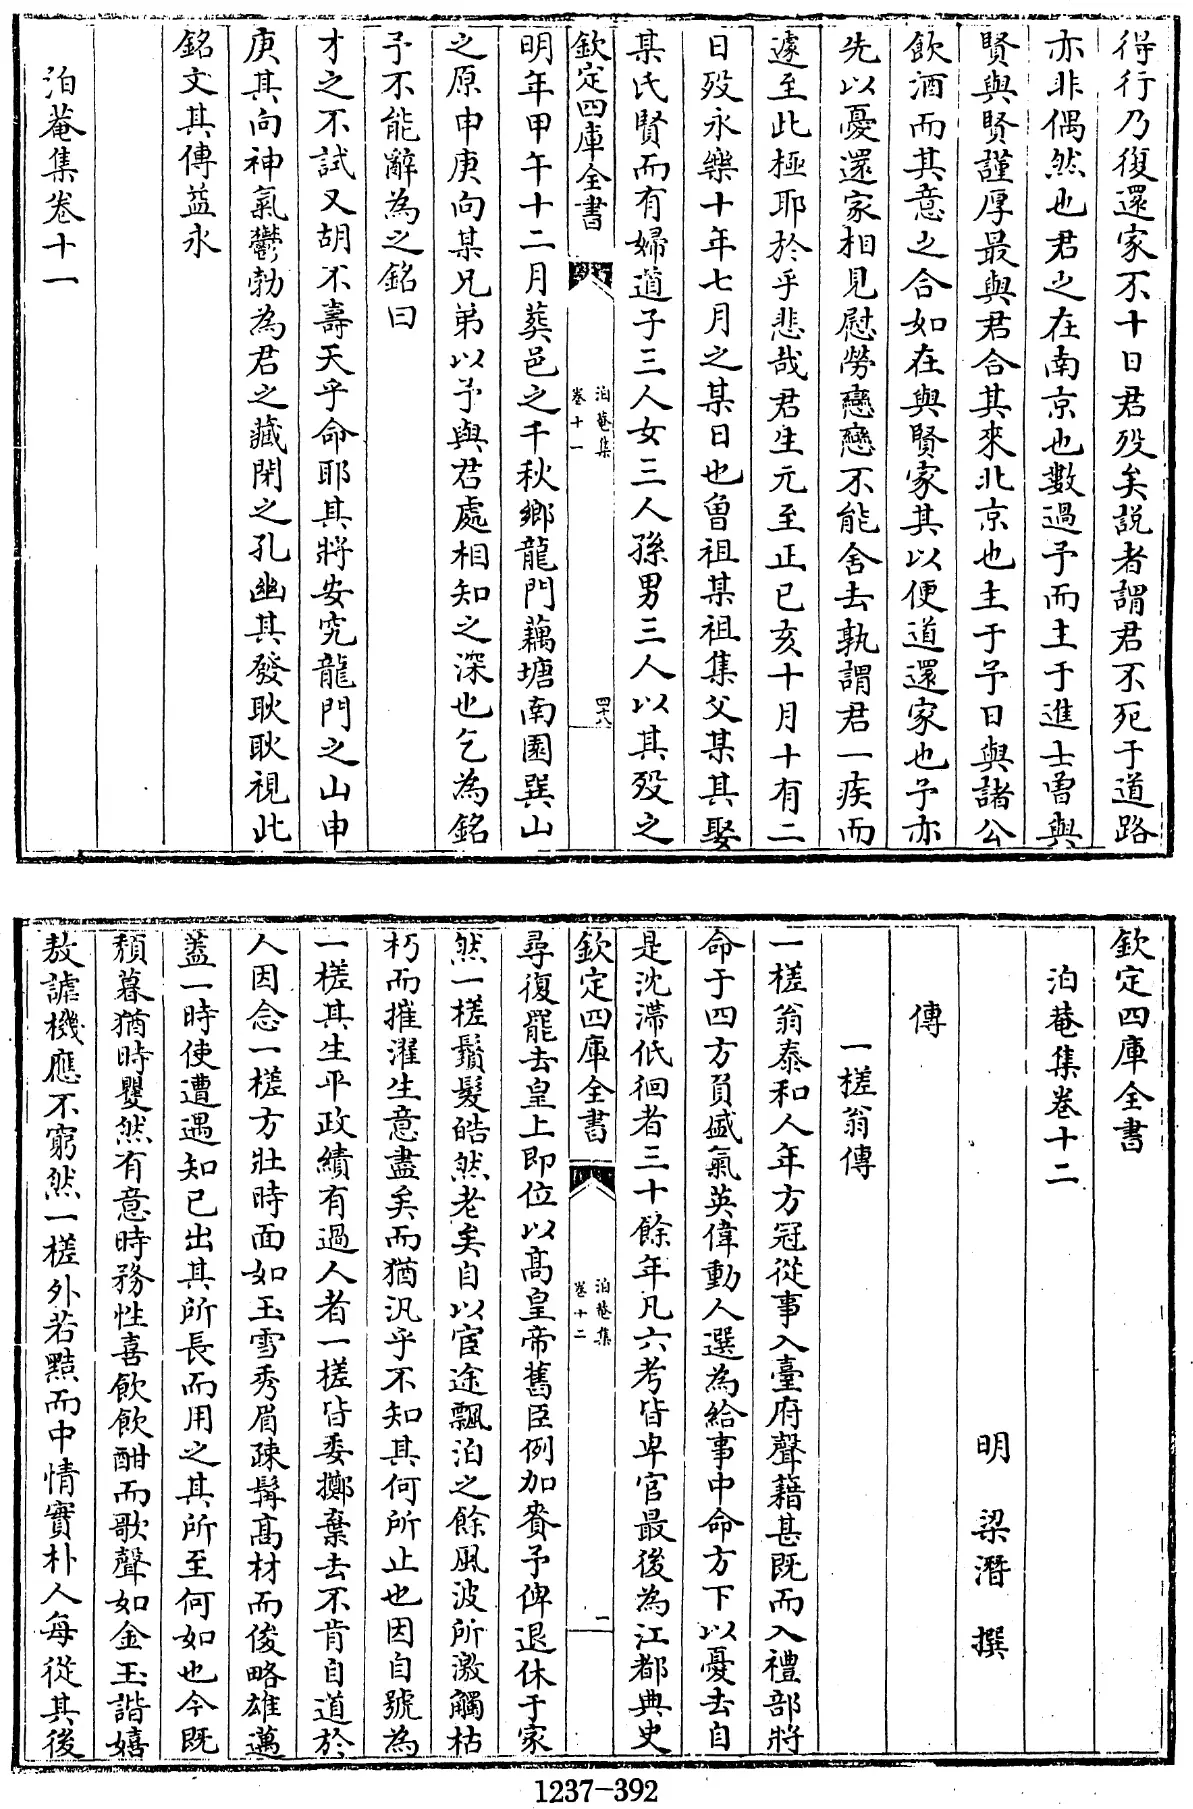 得行乃復還家不十日君歿矣說者謂君不死于道路
亦非偶然也君之在南京也數過予而主于進士曽與
賢與賢謹厚最與君合其來北京也主于予日與諸公
飲酒而其意之合如在與賢家其以便道還家也予亦
先以憂還家相見慰勞戀戀不能舍去孰謂君一疾而
遽至此極耶於乎悲哉君生元至正已亥十月十有二
日歿永樂十年七月之某日也曽祖某祖集父某其娶
某氏賢而有婦道子三人女三人孫男三人以其歿之
欽定四庫全書
泊菴集
卷十一
四十八
明年甲午十二月葬邑之千秋鄉龍門藕塘南園巽山
之原申庚向某兄弟以予與君處相知之深也乞為銘
予不能辭為之銘曰
才之不試又胡不壽天乎命耶其將安究龍門之山申
庚其向神氣鬱勃為君之藏閉之孔幽其發耿耿視此
銘文其傳益永
泊菴集卷十一
欽定四庫全書
泊菴集卷十二
明 梁潛 撰
傳
一槎翁傳
一槎翁泰和人年方冠從事入臺府聲籍甚既而入禮部將
命于四方負盛氣英偉動人選為給事中命方下以憂去自
是沈滯低徊者三十餘年凡六考皆卑官最後為江都典史
欽定四庫全書
泊菴集
卷十二
一
尋復罷去皇上即位以髙皇帝舊臣例加賚予俾退休于家
然一槎鬚髮皓然老矣自以宦途飄泊之餘風波所激觸枯
朽而摧濯生意盡矣而猶汎乎不知其何所止也因自號為
一槎其生平政績有過人者一槎皆委擲棄去不肯自道於
人因念一槎方壯時面如玉雪秀眉疎髯髙材而俊略雄邁
蓋一時使遭遇知已出其所長而用之其所至何如也今既
頽暮猶時矍然有意時務性喜飲飲酣而歌聲如金玉諧嬉
敖謔機應不窮然一槎外若黠而中情實朴人每從其後
1237-392